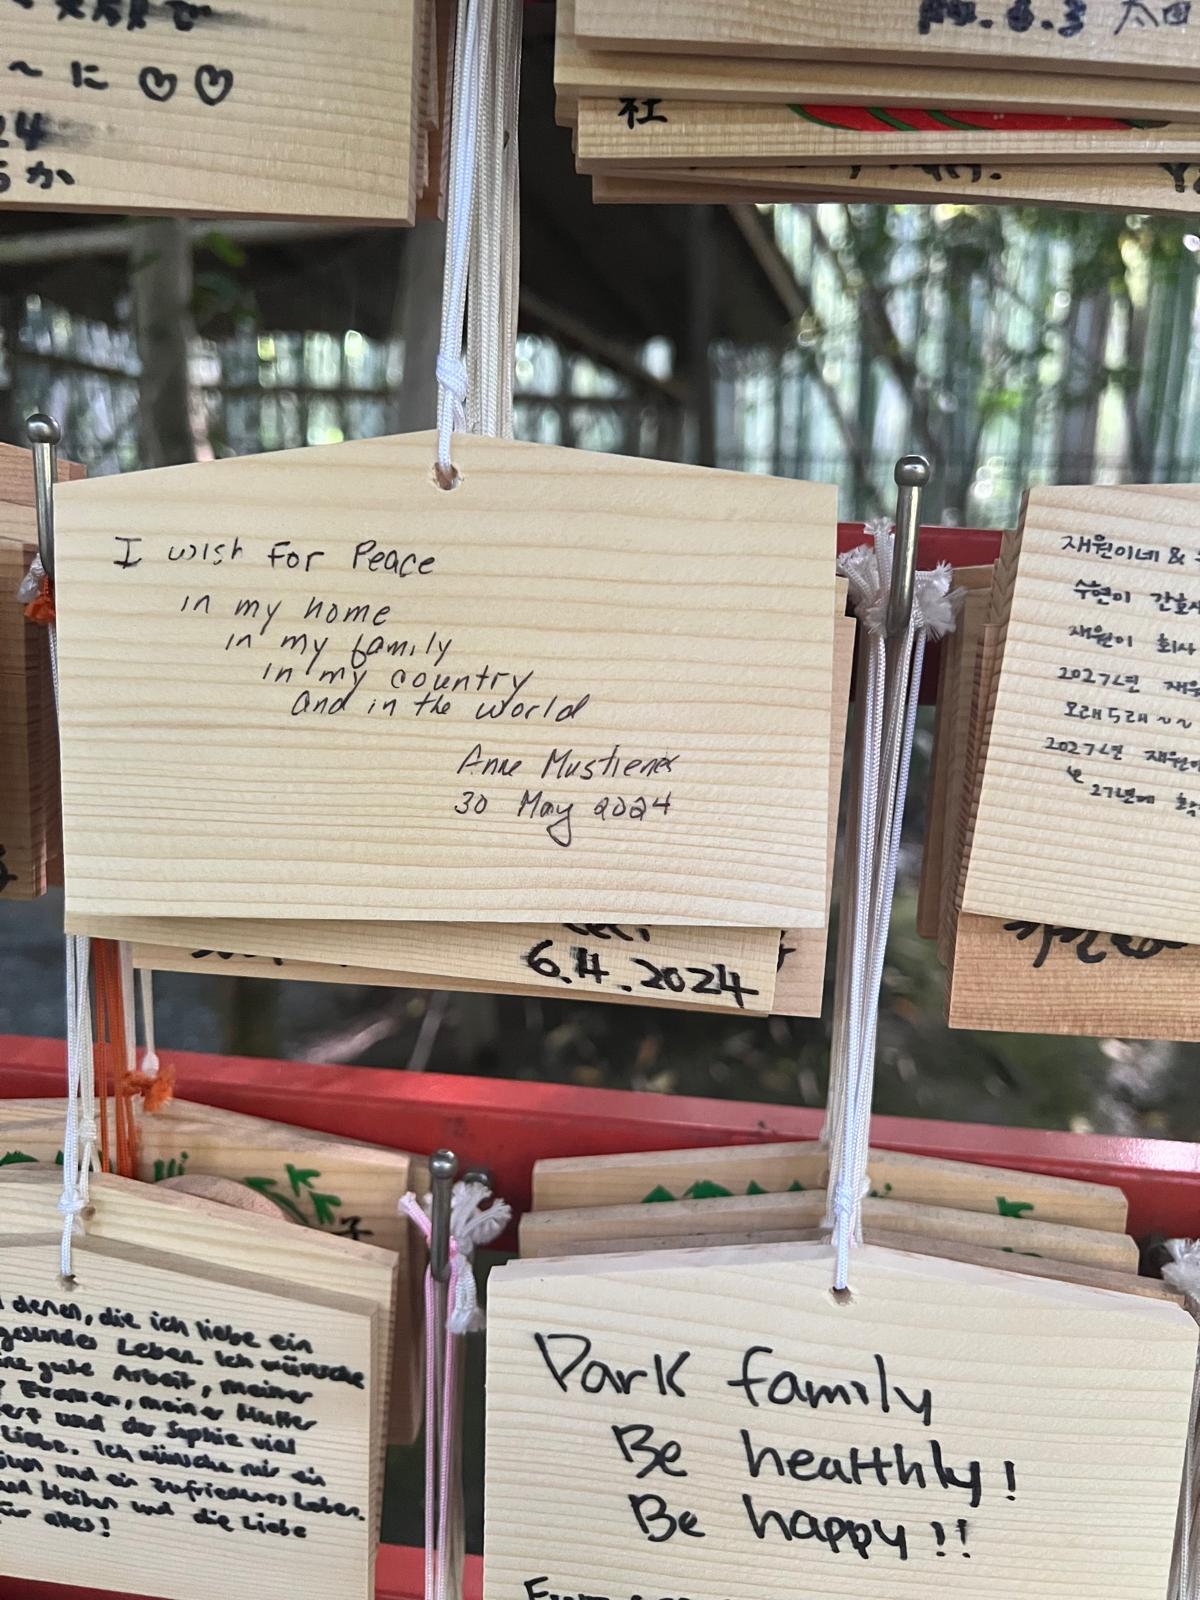 〜に♡♡
24
うか
6.3 太田
社
I wish For Peace
in my home
in my family
in my country
and in the world
Anne
30 May 2024
6.4.2024
재원이네 &
수현이 간호사
재원이 회사
2027년 재원
오래 5래 ~~
2027년 재원이
27년에
denen, die ich liebe ein
gesundes Leben. Ich wünsche
gute Arbeit, meiner
Examen, meiner Mutter
und der Sophie viel
Liebe. Ich wünsche mir ein
und ein zufriedenes Leben.
bleiben und die Liebe
für alles!
Park family
Be healthly!
Be happy!!